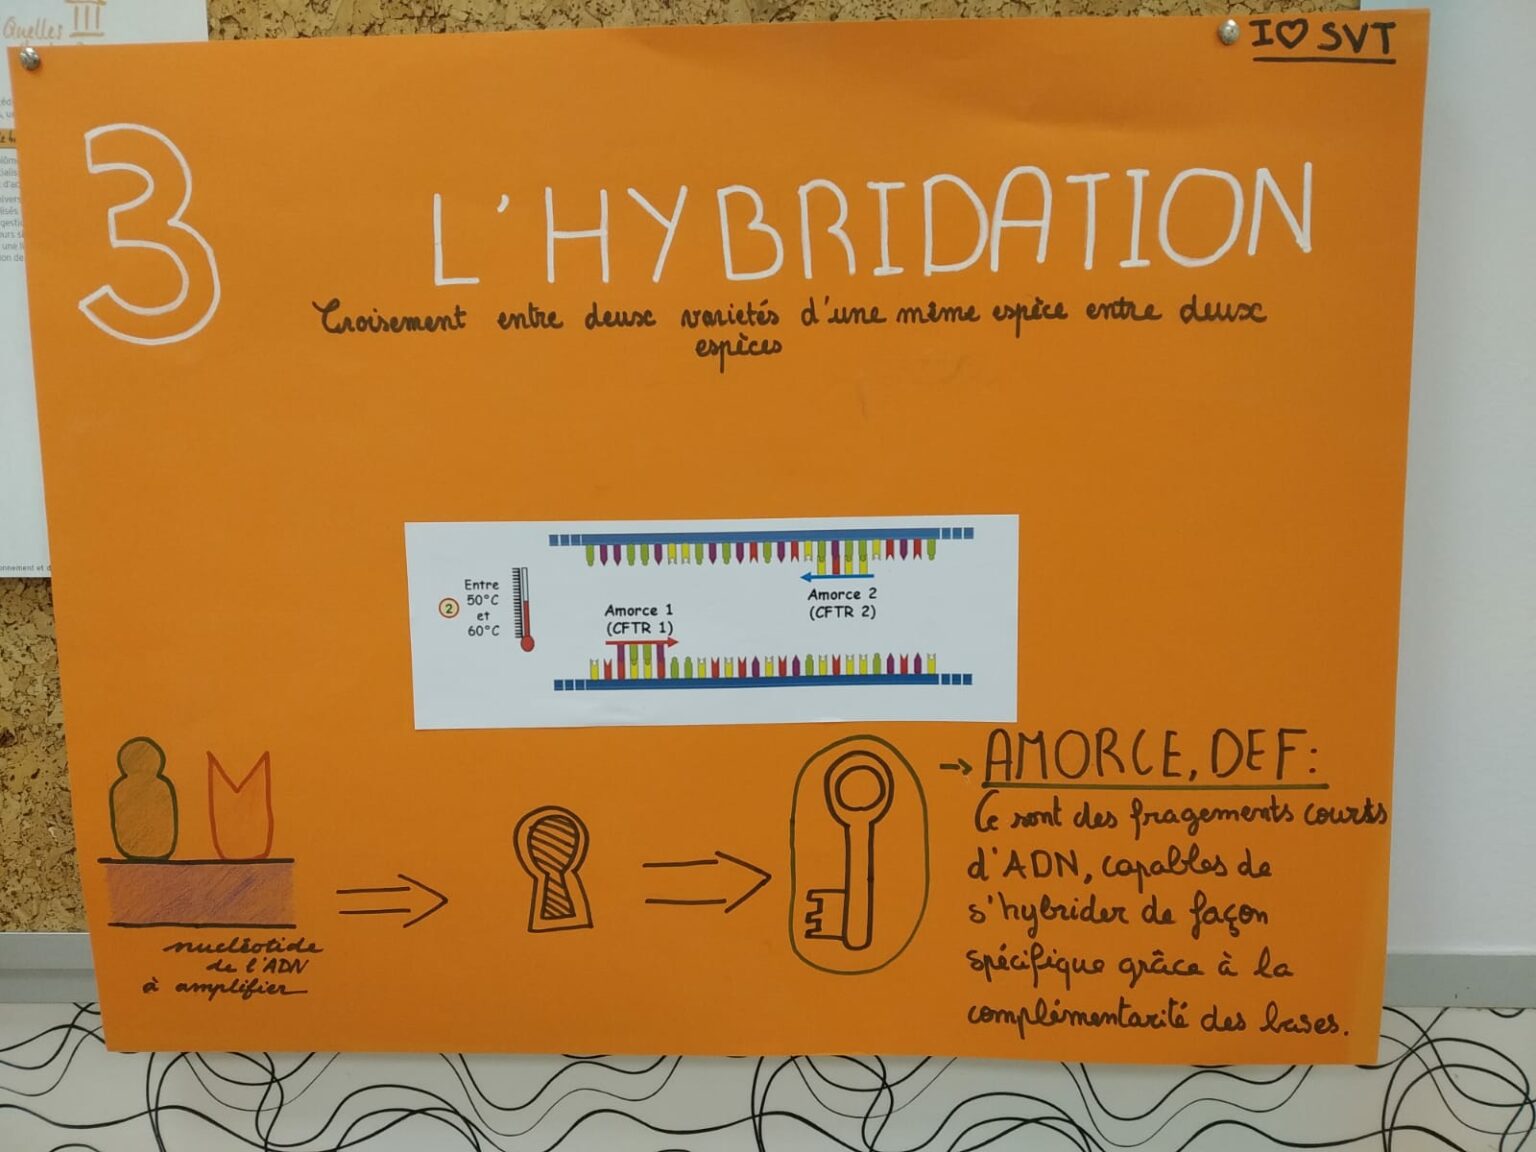 Quelles
I♡ SVT
3
L'HYBRIDATION
Croisement entre deux varietés d'une même espèce entre deux
espèces
2
Entre
50°C
et
60°C
Amorce 1
(CFTR 1)
Amorce 2
(CFTR 2)
nucléotide
de l'ADN
à amplifier
→ AMORCE, DEF:
Ce sont des fragements courts
d'ADN, capables de
s'hybrider de façon
spécifique grâce à la
complémentarité des bases.